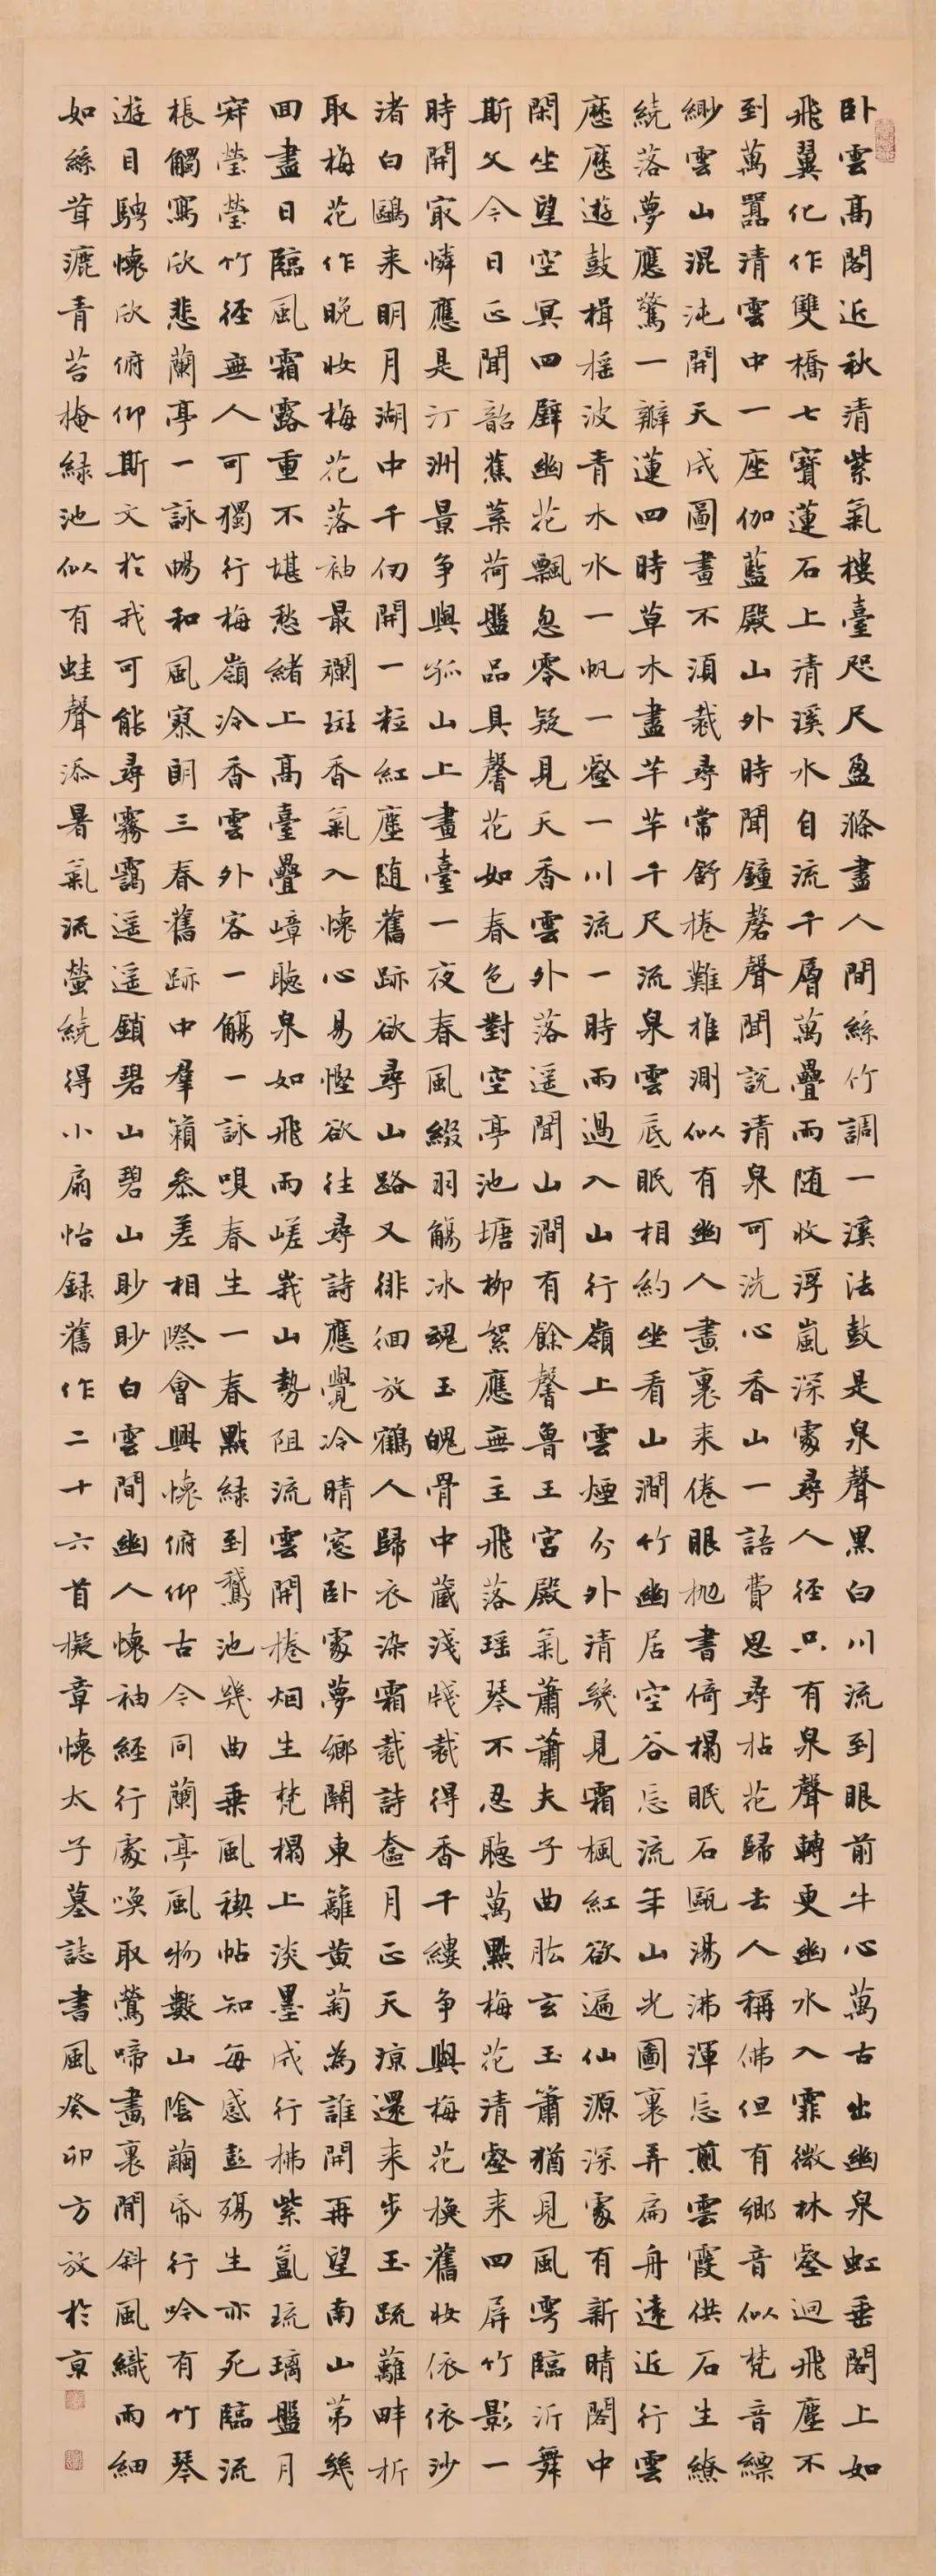 卧雲高閣近秋清紫氣樓臺咫尺盈滌盡人間絲竹調一溪法鼓是泉聲黑白川流到眼前牛心萬古出幽泉虹垂閣上如
飛翼化作雙橋七寶蓮石上清溪水自流千層萬疊雨随收浮嵐深處尋人径只有泉聲轉更幽水入霏微林壑迥飛塵不
到萬囂清雲中一座伽藍殿山外時聞鐘磬聲聞說清泉可洗心香山一語費思尋拈花歸去人稱佛但有鄉音似梵音縹
緲雲山混沌開天成圖畫不須裁尋常舒捲難推測似有幽人畫裏来倦眼抛書倚榻眠石甌湯沸渾忘煎雲霞供石生繚
繞落夢應驚一瓣蓮四時草木盡芊芊千尺流泉雲底眠相約坐看山澗竹幽居空谷忘流年山光圖裏弄扁舟遠近行雲
歷歷遊鼓楫摇波青水水一帆一壑一川流一時雨過入山行嶺上雲煙分外清幾見霜楓紅欲遍仙源深處有新晴閣中
閑坐望空冥四壁幽花飄忽零疑見天香雲外落遥聞山澗有餘馨魯王宮殿氣蕭蕭夫子曲肱玄玉簫猶見風雩臨沂舞
斯文今日正聞韶蕉葉荷盤品具馨花如春色對空亭池塘柳絮應無主飛落瑶琴不忍聽萬點梅花清壑来四屏竹影一
時開最憐應是汀洲景争與孤山上畫臺一夜春風綴羽觴冰魂玉魄骨中藏淺淺裁得香千縷争與梅花换舊妝依依沙
渚白鷗来明月湖中千仞開一粒紅塵随舊跡欲尋山路又徘徊放鶴人歸衣染霜裁詩奩月正天凉還来步玉疏籬畔折
取梅花作晚妝梅花落袖最斕斑香氣入懷心易慳欲往尋詩應覺冷晴窓卧處夢鄉關東籬黄菊為誰開再望南山第幾
回盡日臨風霜露重不堪愁緒上高臺疊嶂聽泉如飛雨嵯峩山勢阻流雲開捲烟生梵榻上淡墨成行拂紫氳琉璃盤月
窣瑩瑩竹徑無人可獨行梅嶺冷香雲外客一觴一詠嗅春生一春點緑到鵞池幾曲乗風禊帖知每感彭殤生亦死臨流
棖觸寫欣悲蘭亭一詠暢和風寒朗三春舊跡中羣籟叅差相際會興懷俯仰古今同蘭亭風物數山陰繭帋行吟有竹琴
遊目騁懷欣俯仰斯文於我可能尋霧靄遥遥鎖碧山碧山眇眇白雲間幽人懷袖經行處喚取鶯啼畫裏閒斜風織雨細
如絲茸漉青苔掩緑池似有蛙聲添暑氣流螢繞得小扇怡録舊作二十六首擬章懷太子墓誌書風癸卯方放於京